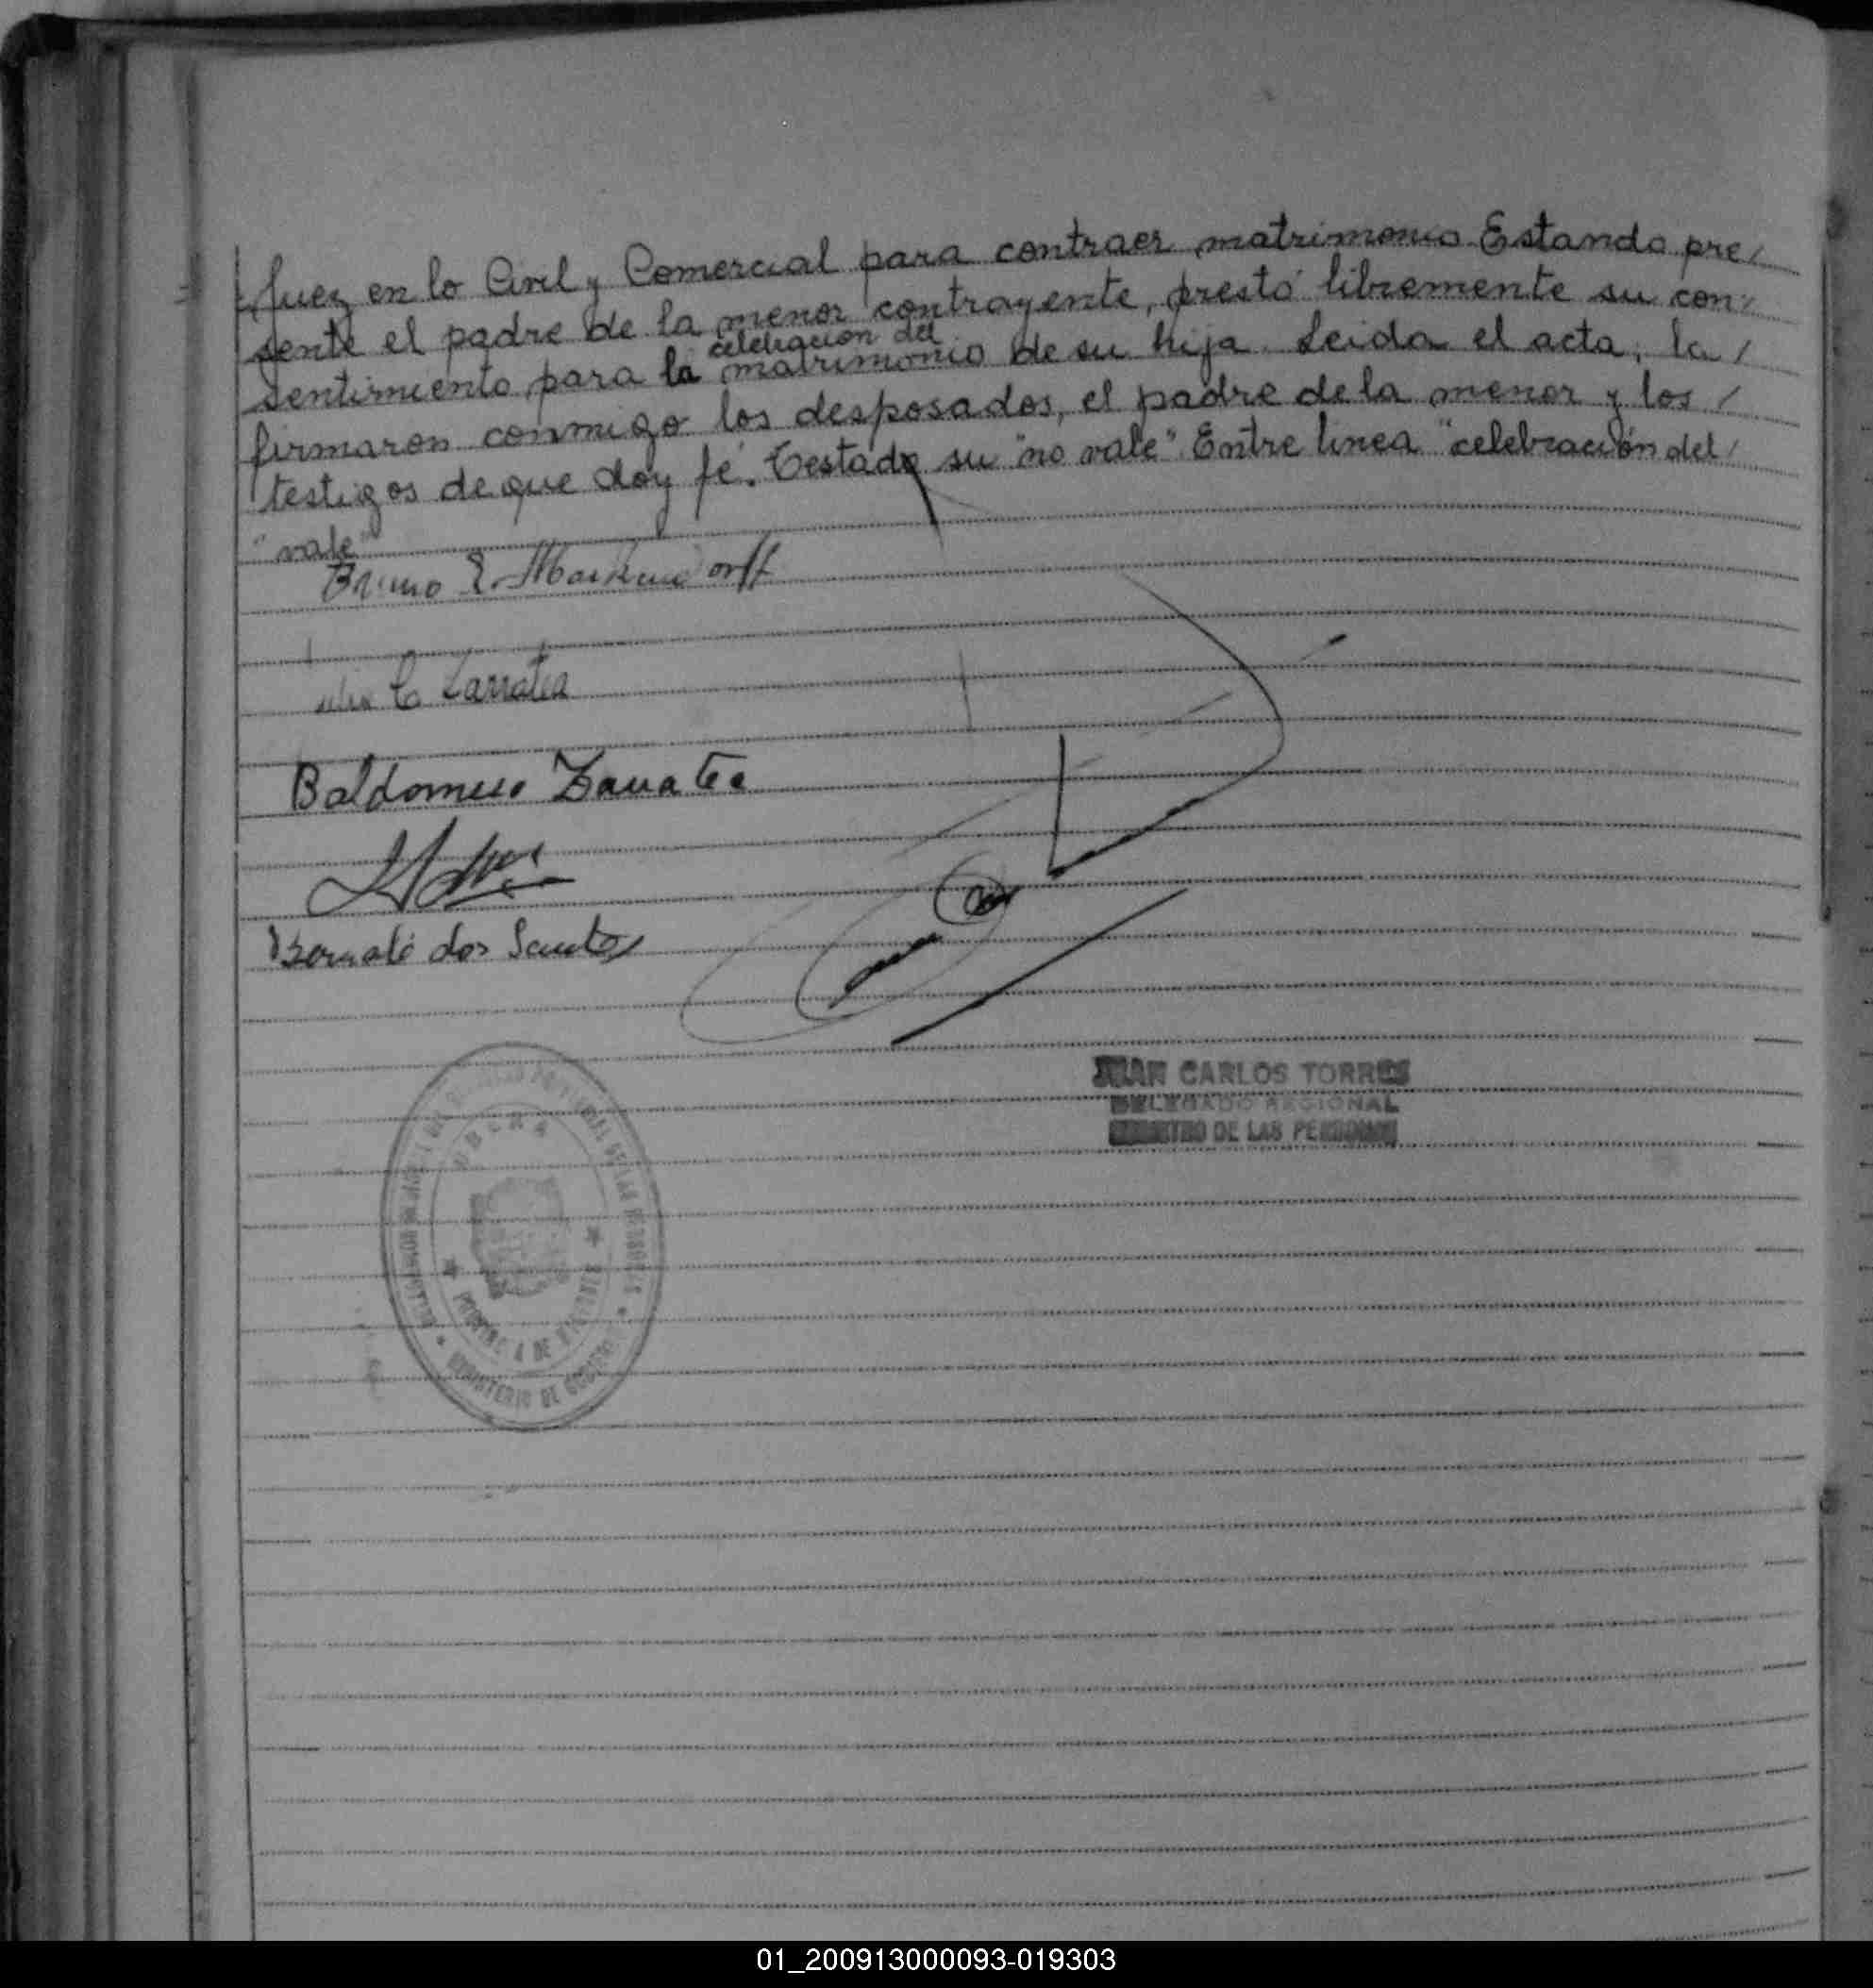 Juez en lo Civil y Comercial para contraer matrimonio. Estando pre/
sente el padre de la menor contrayente, prestó libremente su con-/
celebración del
sentimiento para la matrimonio de su hija. Leida el acta, la /
firmaron conmigo los desposados, el padre de la menor y los /
testigos de que doy fé. Testado su "no vale" Entre linea "celebración del/
"vale"
Bruno E.
C Zarratea
Baldomero Zarratea
dos Santos
JUAN CARLOS TORRES
DELEGADO REGIONAL
REGISTRO DE LAS PERSONAS
OBERA
PROVINCIA DE MISIONES
MINISTERIO DE GOBIERNO
01_200913000093-019303